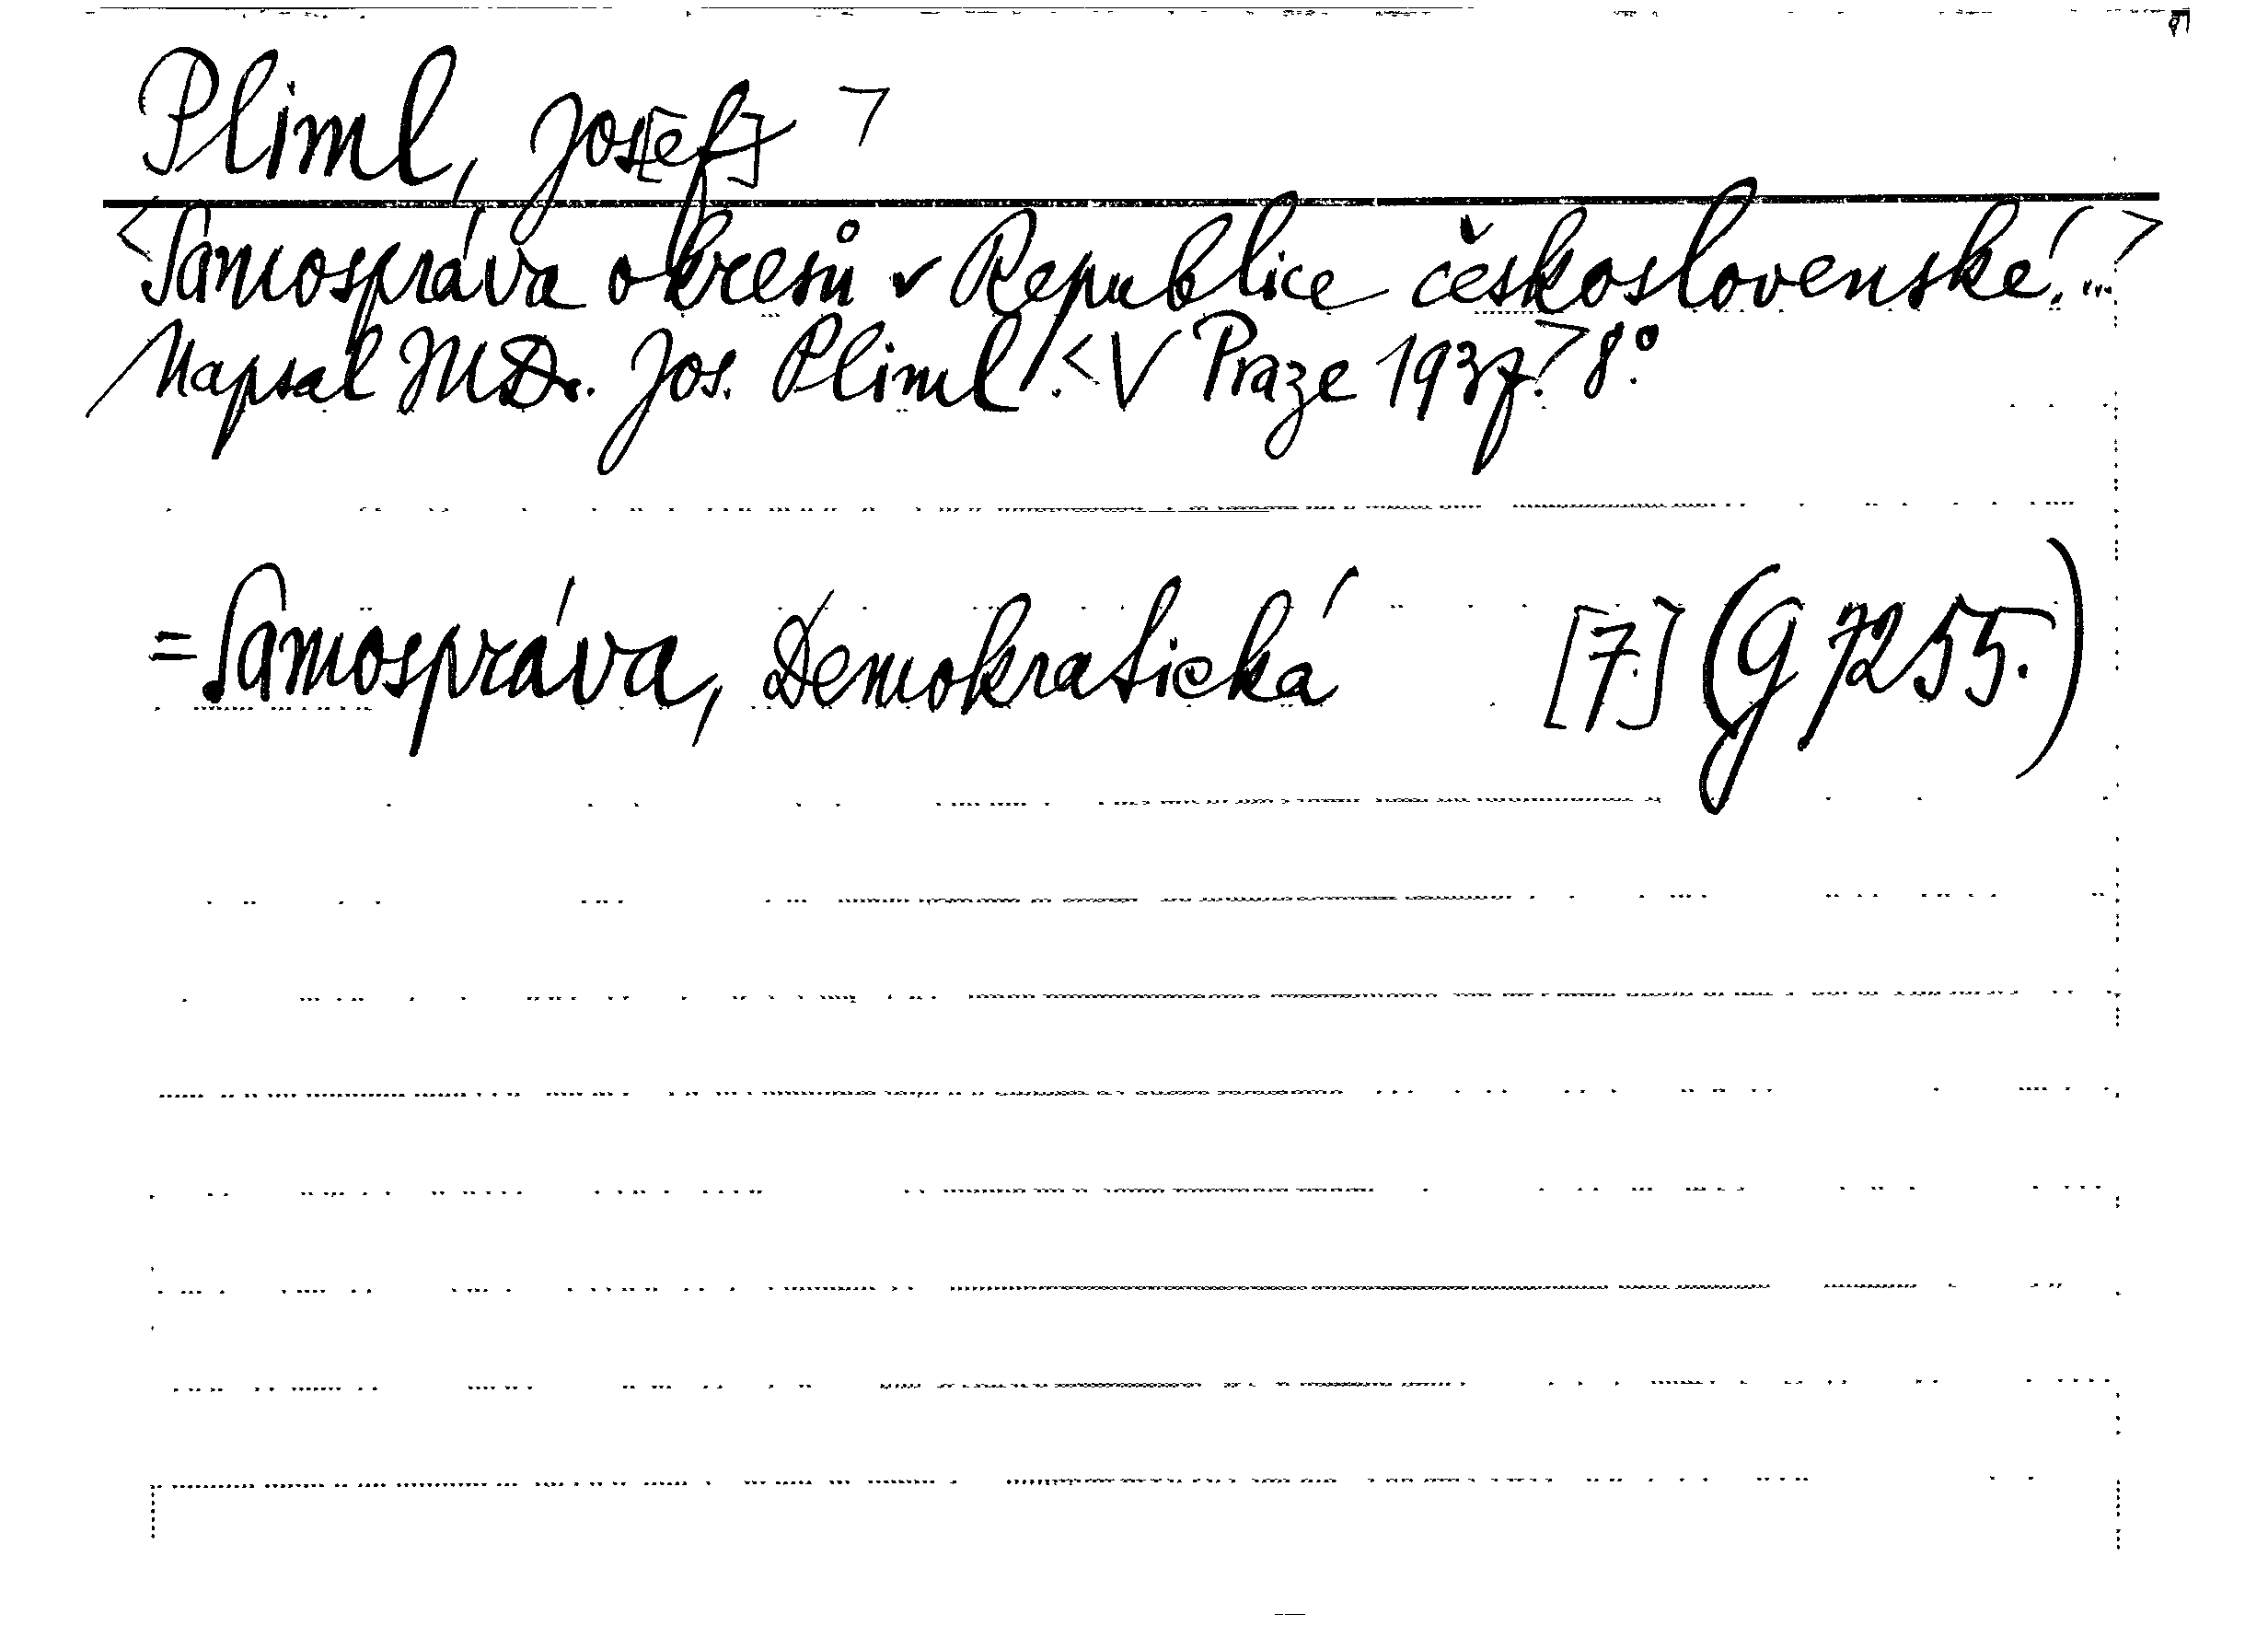 Pliml, Jos[ef] >
<Samospráva okresů v Republice československé. ...>
Napsal MDr. Jos. Pliml. <V Praze 1937.> 8°.
= Samospráva, Demokratická [7.] (G 7255.)